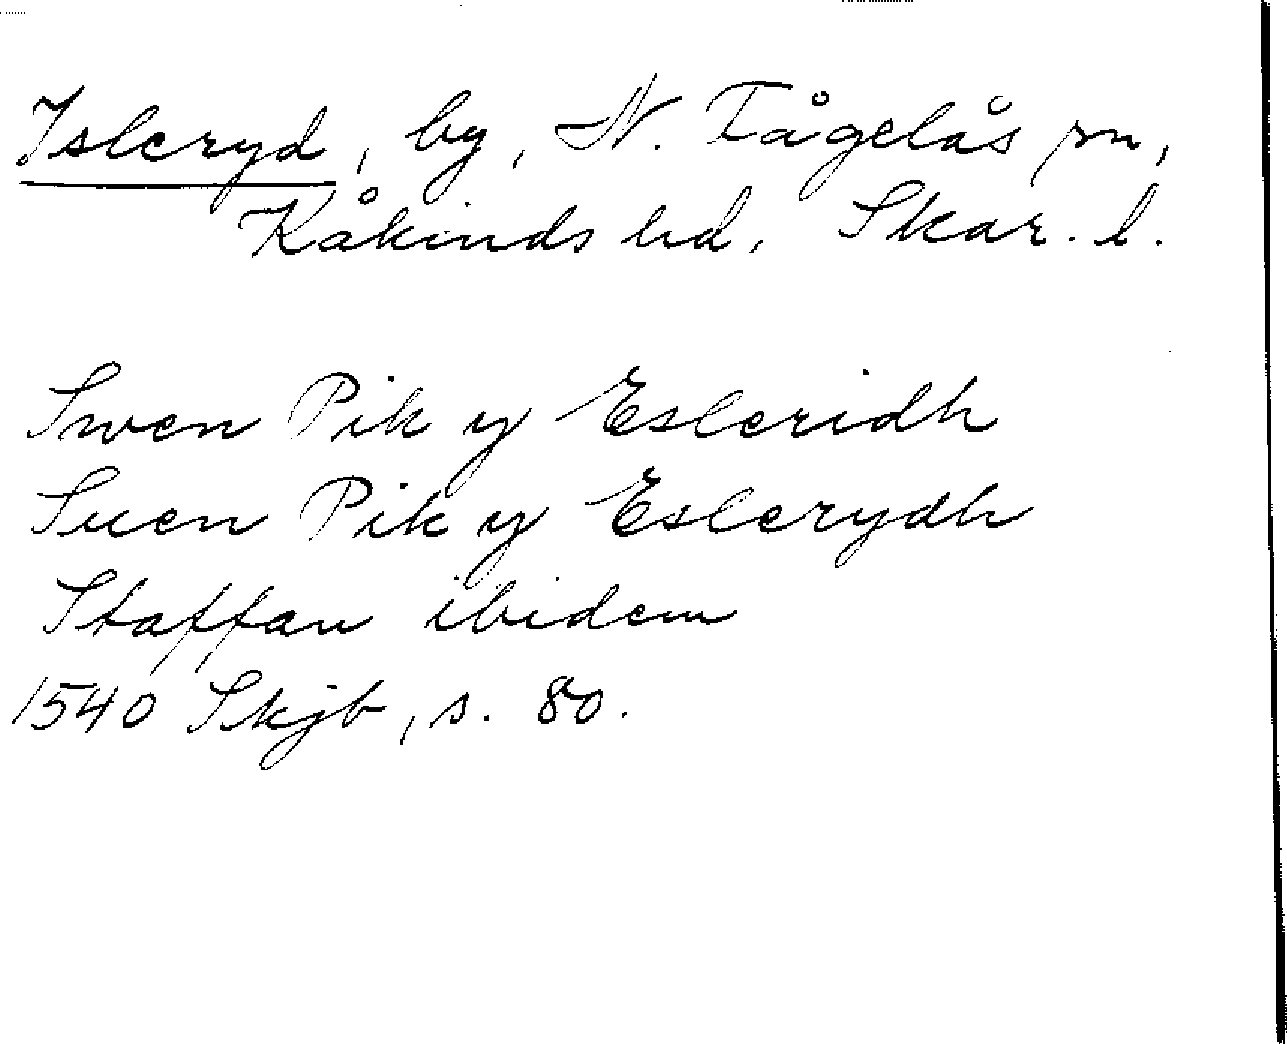 Isleryd, by, N. Fågelås sn,
Kåkinds hd, Skar. l.
Swen Pik y Esleridh
Suen Pik y Eslerydh
Staffan ibidem
1540 Skjb, s. 80.